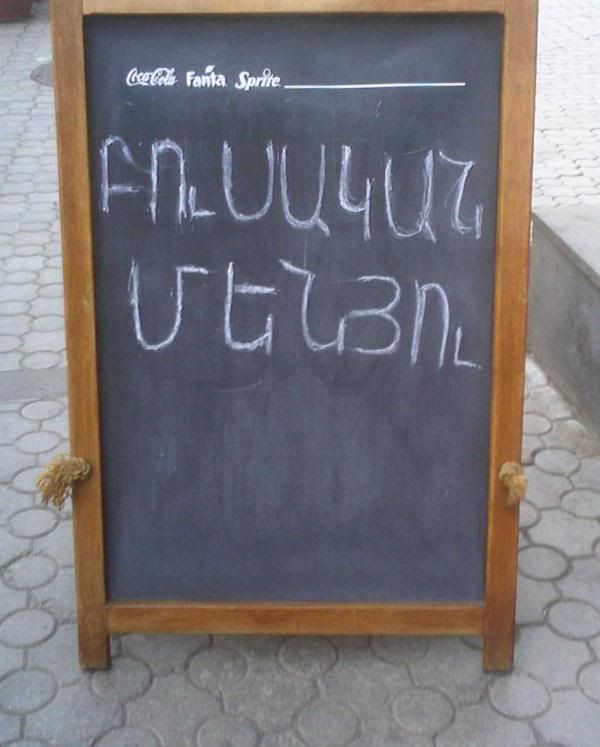 Coca-Cola Fanta Sprite
ԲՈւՍԱԿԱՆ
ՄԵՆՅՈւ